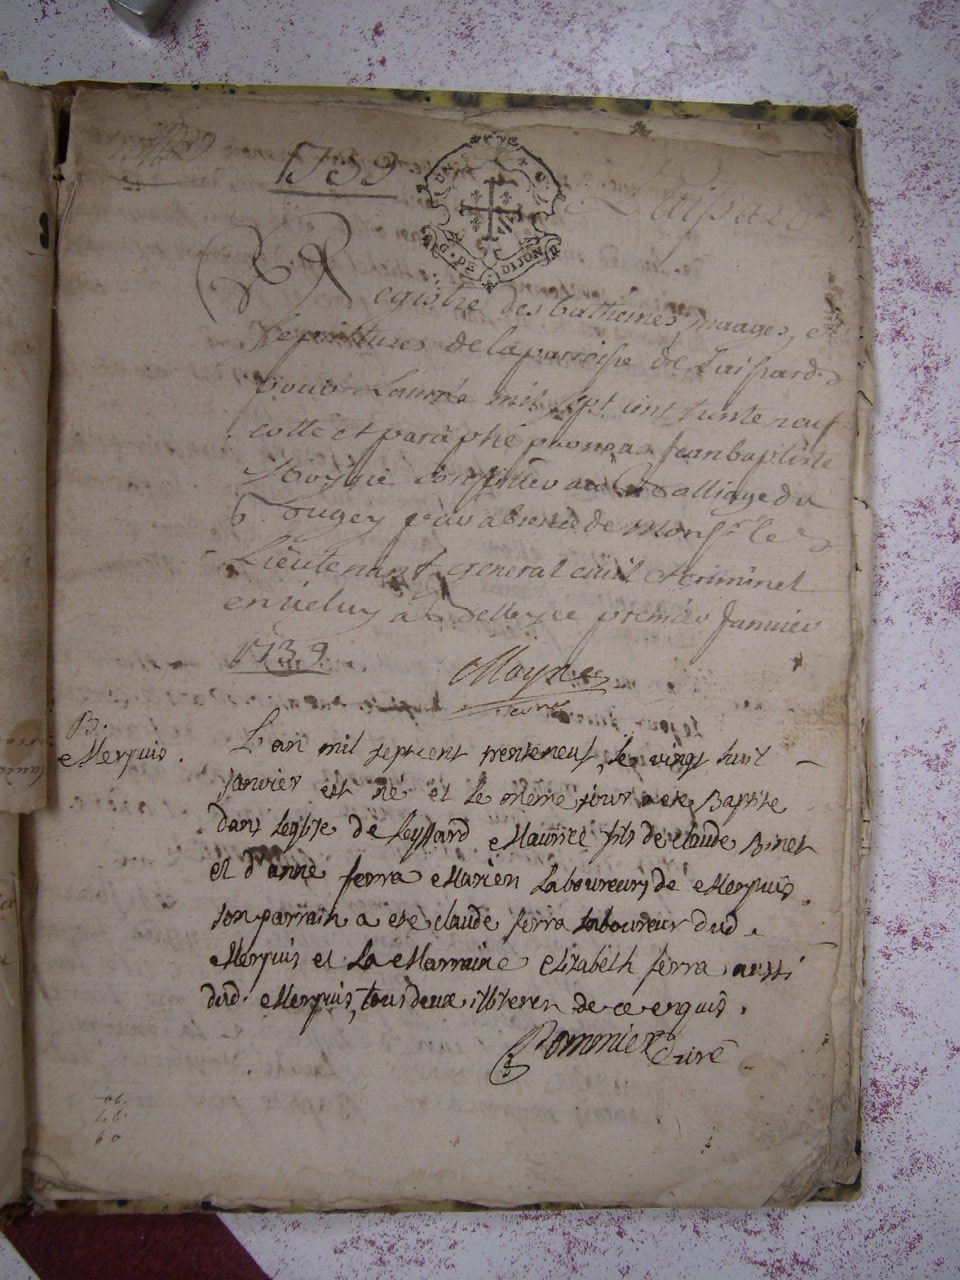 1739
G. DE DIJON
Registre des bathemes, mariages, et
sepultures de la parroisse de Laissard
pour Lanné mil sept cent trente neuf
cotté et paraphé par nous Jean baptiste
Moyne Conseiller au Balliage du
Bugey par absence de Mons.r le
Lieutenant general civil et criminel
au Belley ce premier Janvier
1739.
Moyne
B.
Merpuis.
L'an mil septcent trenteneuf, le vingt huit
janvier est né et le même jour a ete Baptise
dans leglise de Leyssard Maurice fils de claude Binet
et d'anne ferra Marien Laboureurs de Merpuis.
son parrain a ete claude ferra Laboureur dud.
Merpuis et La Marraine Elizabeth ferra aussi
dud. Merpuis, tous deux illiteres de ce enquis.
Pommier curé